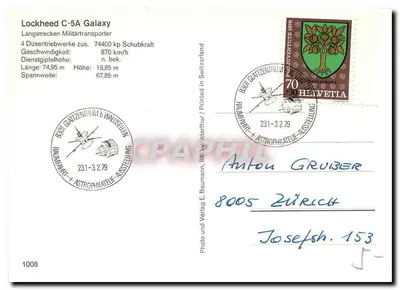 Lockheed C-5A Galaxy
Langstrecken Militärtransporter
4 Düsentriebwerke zus. 74400 kp Schubkraft
Geschwindigkeit: 870 km/h
Dienstgipfelhöhe: n. bek.
Länge: 74,95 m Höhe: 19,85 m
Spannweite: 67,85 m
70
HELVETIA
8301 GLATTZENTRUM B. WALLISELLEN
23.1.-3.2.79
RAUMFAHRT- + ASTROPHILATELIE-AUSSTELLUNG
8301 GLATTZENTRUM B. WALLISELLEN
23.1.-3.2.79
RAUMFAHRT- + ASTROPHILATELIE-AUSSTELLUNG
Photo und Verlag E. Baumann, Winterthur / Printed in Switzerland
Anton GRUBER
8005 ZÜRICH
Josefstr. 153
5-
1008